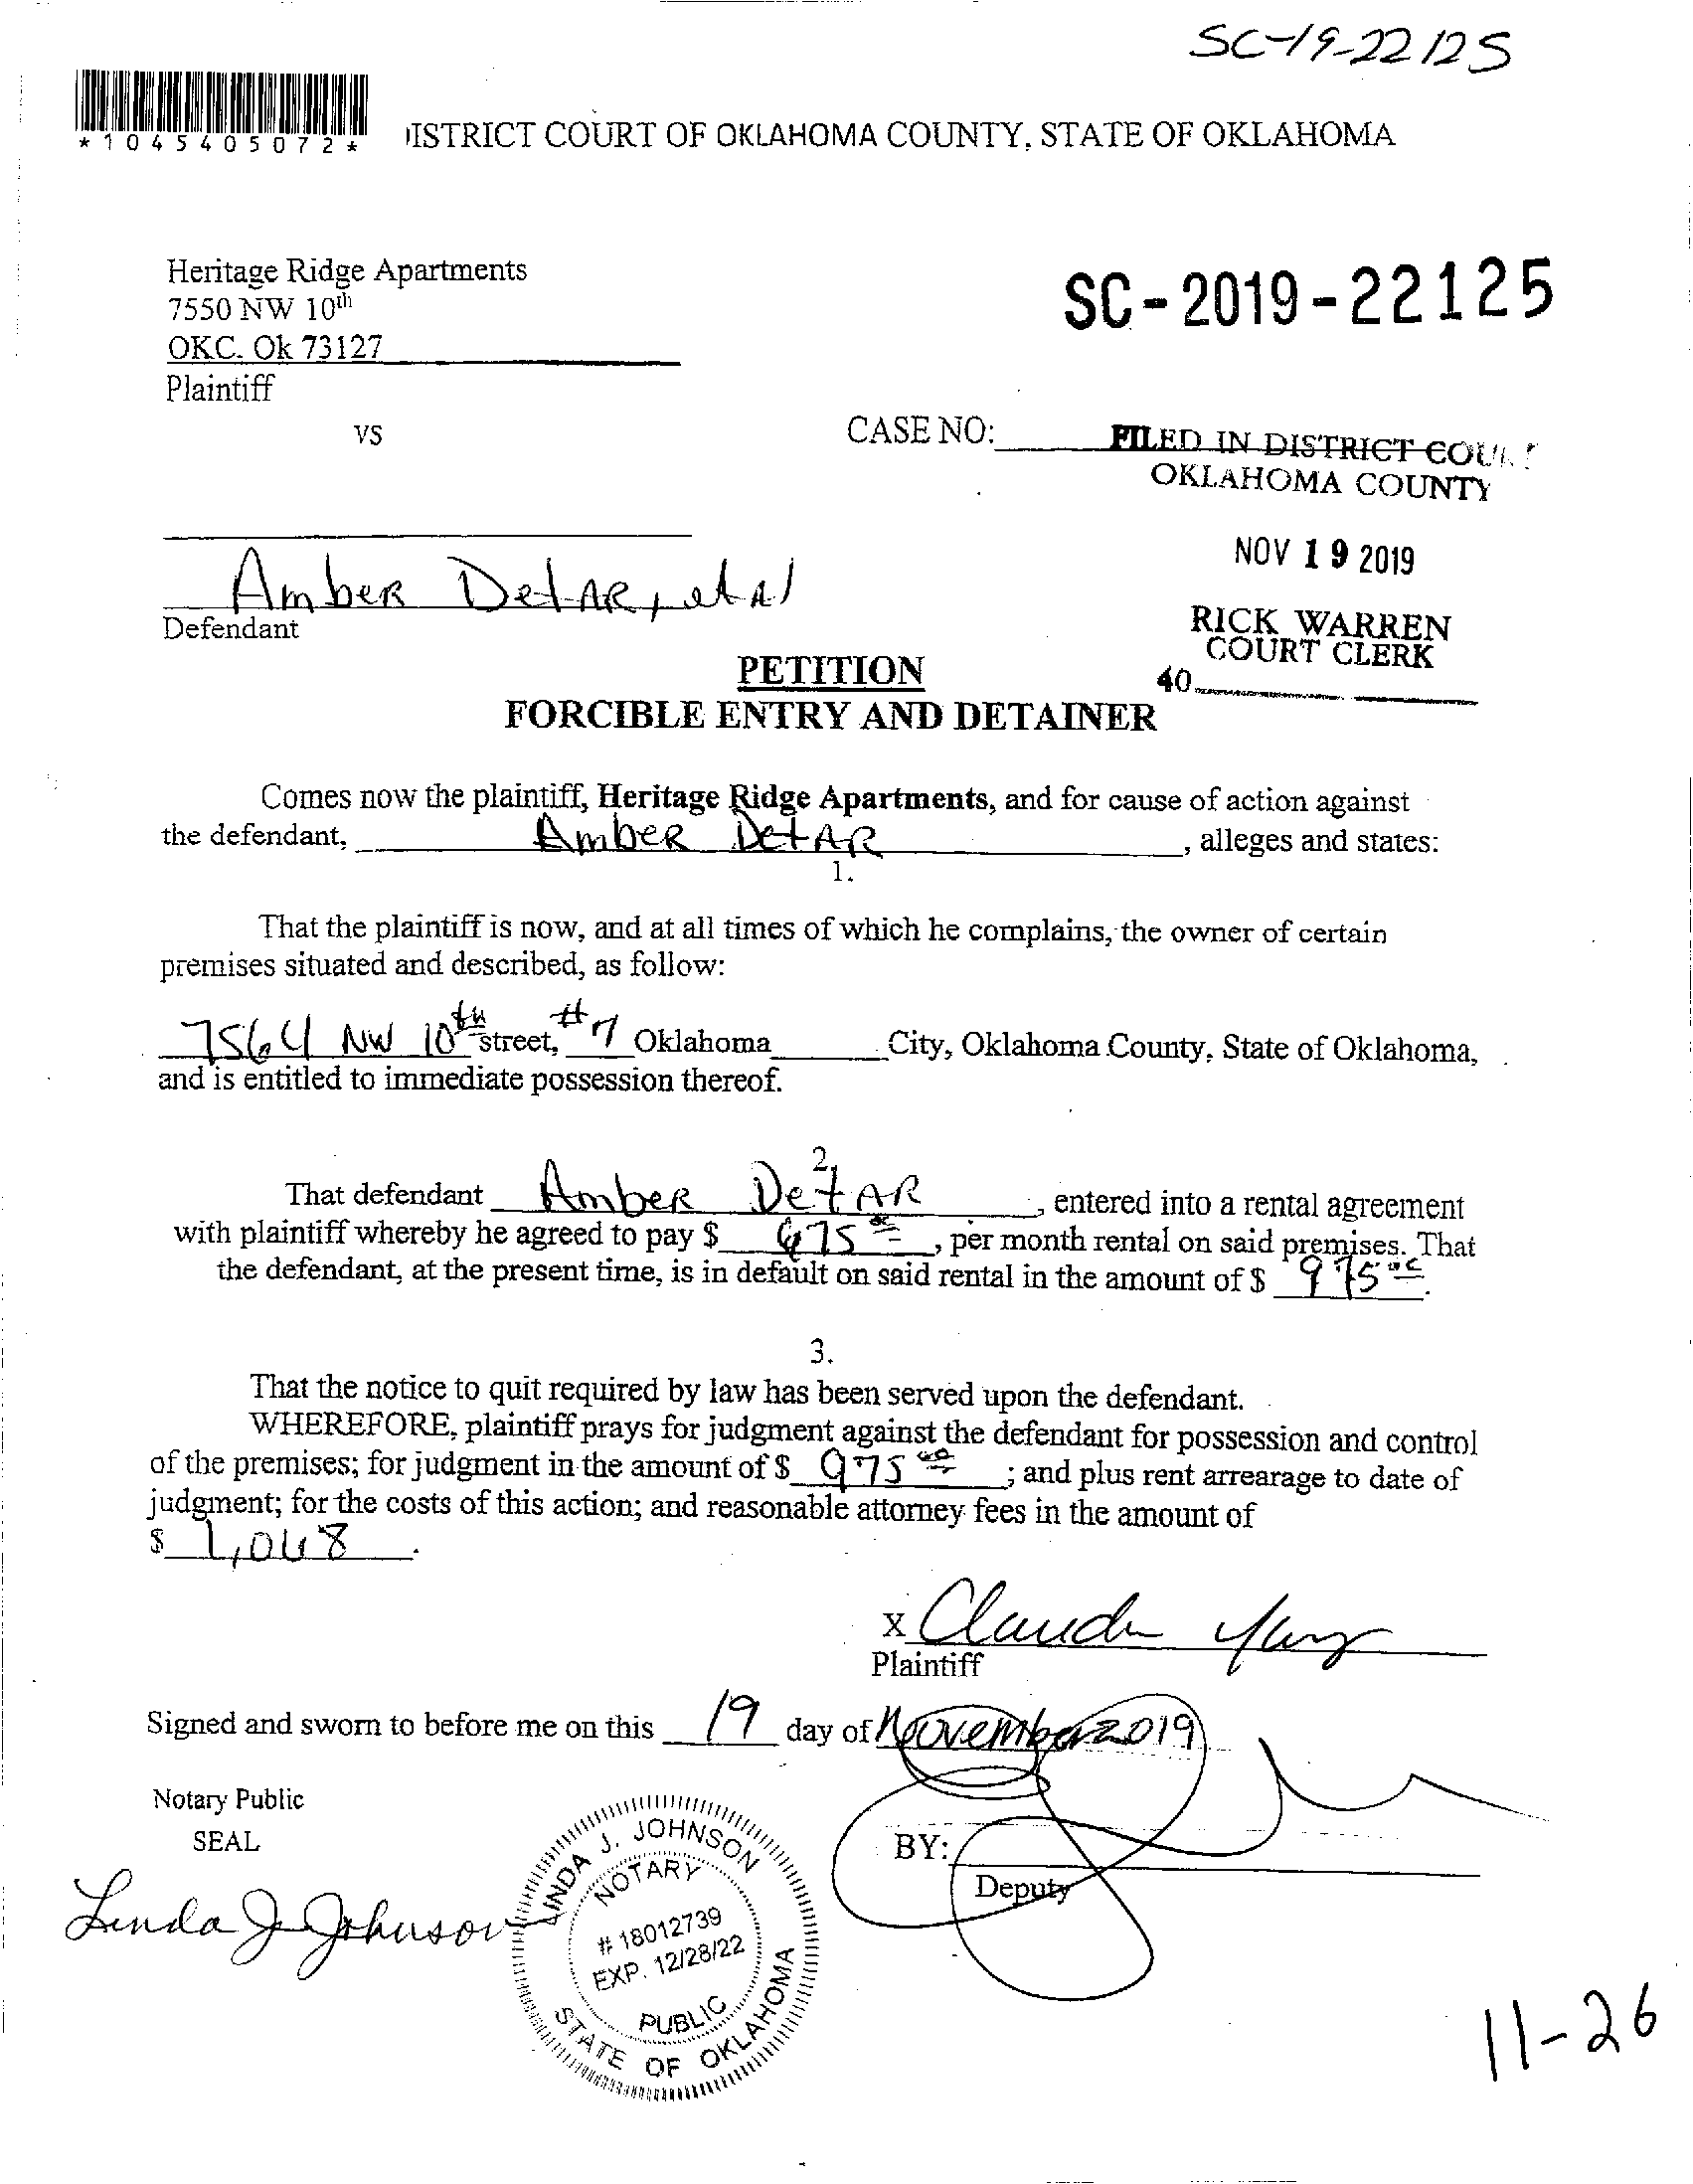 SC-19-22125
*1045405072*
ISTRICT COURT OF OKLAHOMA COUNTY, STATE OF OKLAHOMA
Heritage Ridge Apartments
7550 NW 10th
OKC. Ok 73127
Plaintiff
SC-2019-22125
vs
CASE NO:
FILED IN DISTRICT COURT
OKLAHOMA COUNTY
NOV 19 2019
RICK WARREN
COURT CLERK
40
Amber Detar, et al
Defendant
PETITION
FORCIBLE ENTRY AND DETAINER
Comes now the plaintiff, Heritage Ridge Apartments, and for cause of action against
the defendant, Amber Detar, alleges and states:
1.
That the plaintiff is now, and at all times of which he complains, the owner of certain
premises situated and described, as follow:
7564 NW 10th street, #7 Oklahoma City, Oklahoma County, State of Oklahoma,
and is entitled to immediate possession thereof.
2.
That defendant Amber Detar, entered into a rental agreement
with plaintiff whereby he agreed to pay $ 675 00, per month rental on said premises. That
the defendant, at the present time, is in default on said rental in the amount of $ 975 00.
3.
That the notice to quit required by law has been served upon the defendant.
WHEREFORE, plaintiff prays for judgment against the defendant for possession and control
of the premises; for judgment in the amount of $ 975 00; and plus rent arrearage to date of
judgment; for the costs of this action; and reasonable attorney fees in the amount of
$
x
Plaintiff
Signed and sworn to before me on this 19 day of November 2019
Notary Public
SEAL
Linda J Johnson
LINDA J. JOHNSON
NOTARY
# 18012739
EXP. 12/28/22
PUBLIC
STATE OF OKLAHOMA
BY:
Deputy
11-26